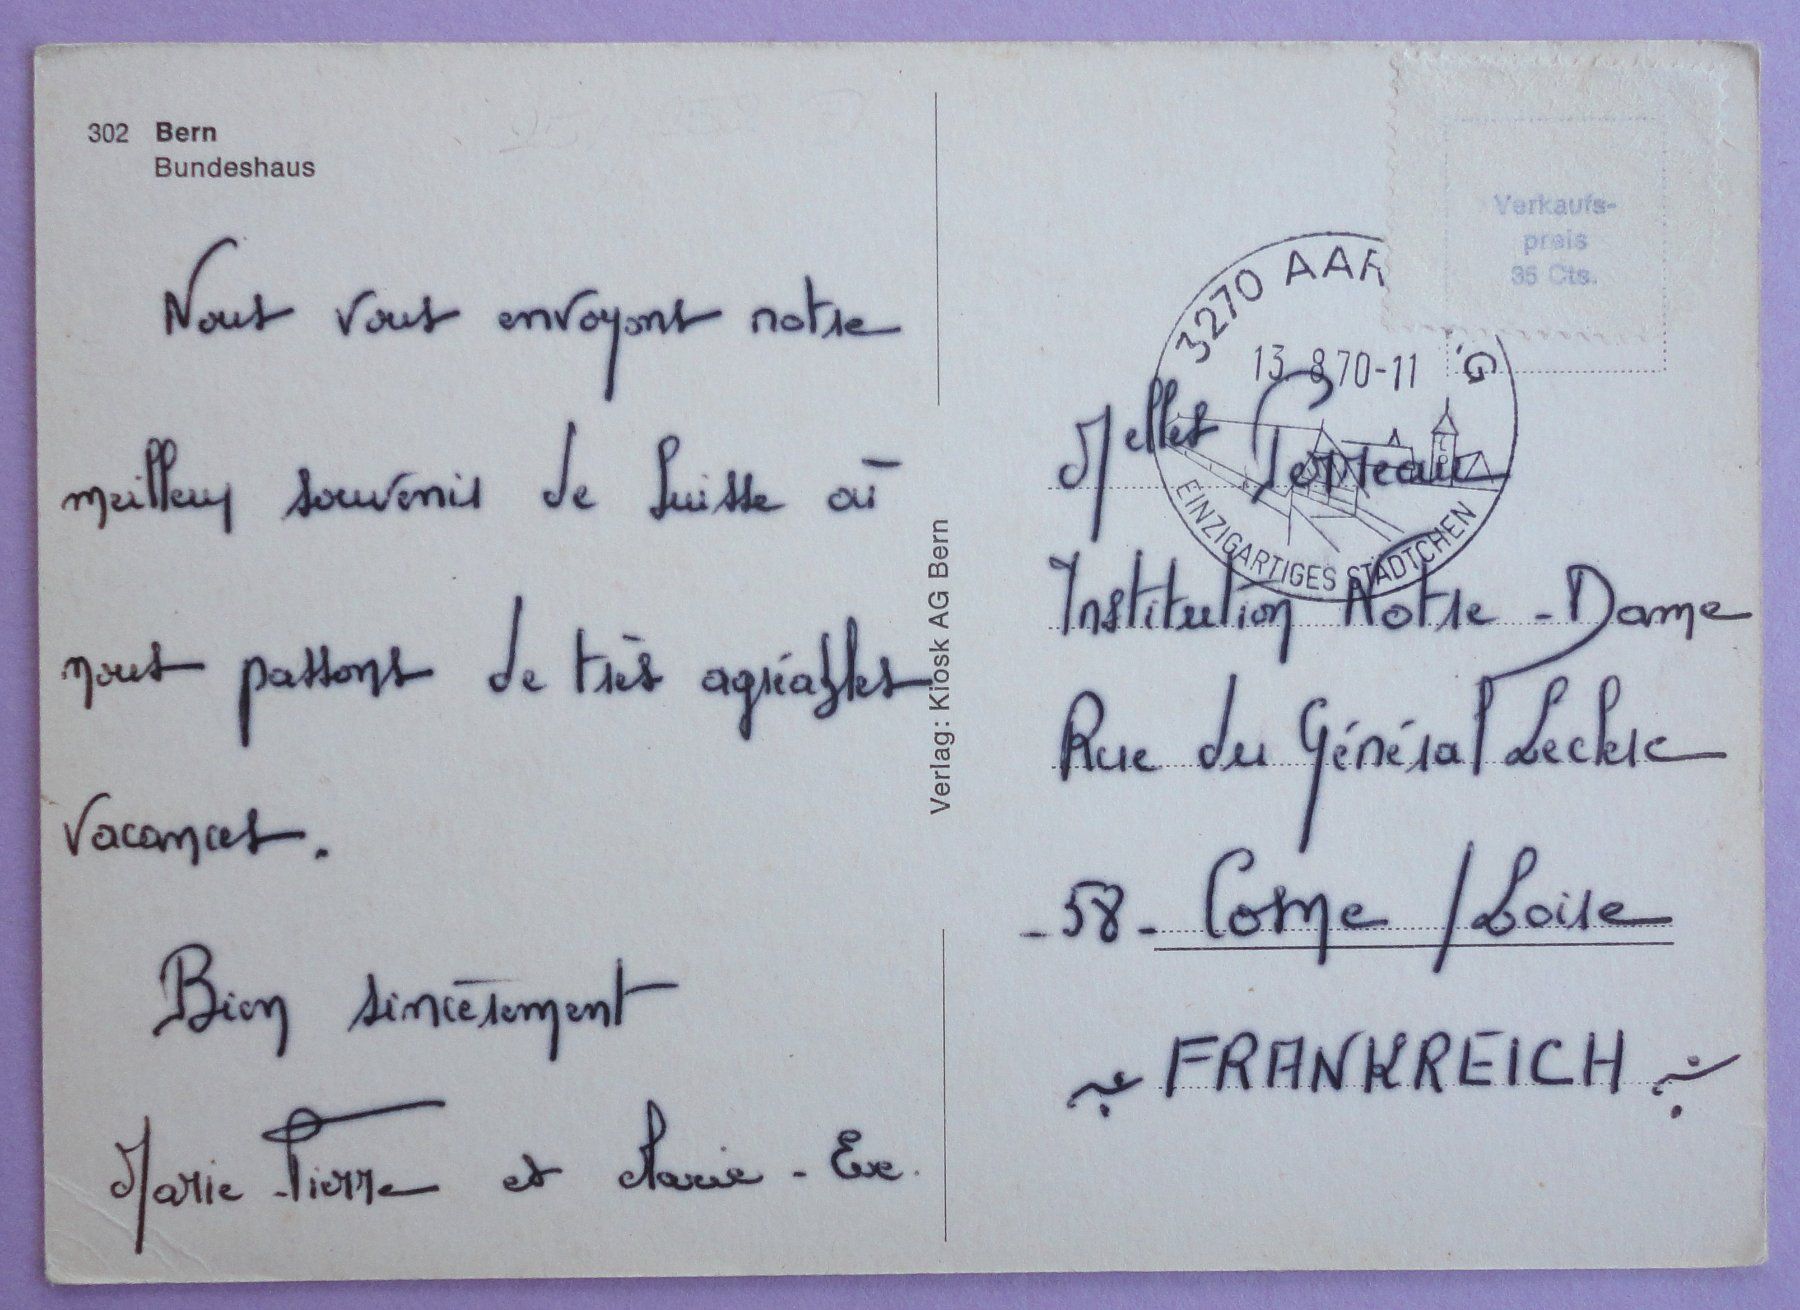 302 Bern
Bundeshaus
Nous vous envoyons notre
meilleur souvenir de Suisse où
nous passons de très agréables
vacances.
Bien sincèrement
Marie-Pierre et Marie-Eve.
Verlag: Kiosk AG Bern
Verkaufs-
preis
35 Cts.
3270 AAR G
13.8.70-11
EINZIGARTIGES STÄDTCHEN
Melles
Institution Notre-Dame
Rue du Général Leclerc
-58- Cosne /Loire
~ FRANKREICH ~